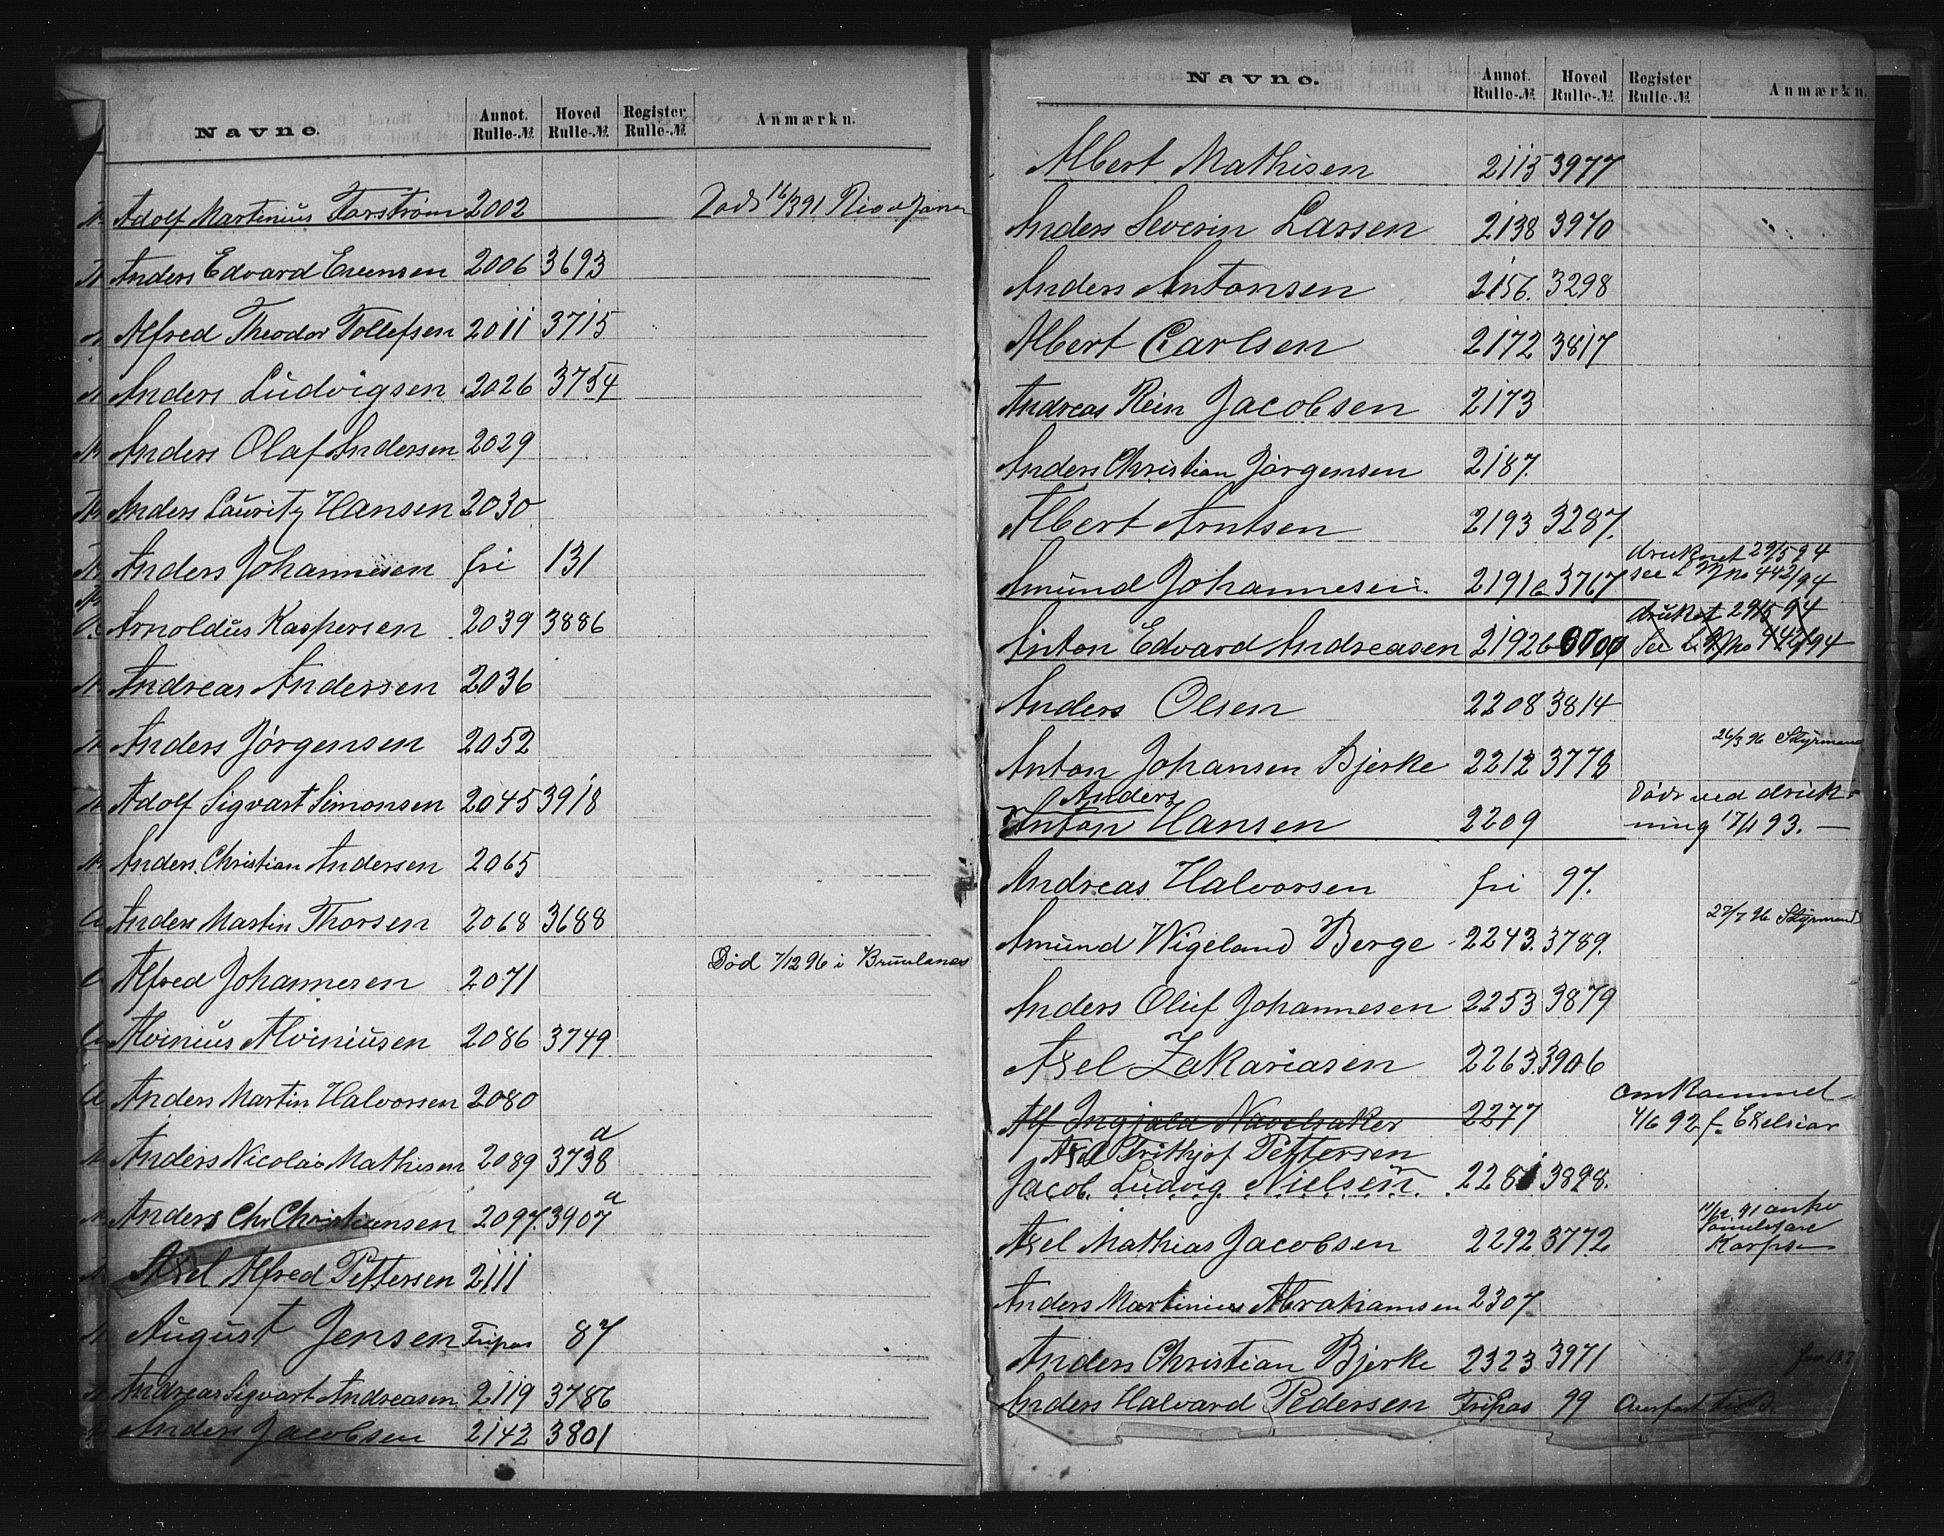 Navne. Annot. Rulle-№ Hoved Rulle-№ Register Rulle-№ Anmærkn.
Adolf Martinius Torström 2002 Död 16/3 91 Rio d Janer
Anders Edvard Evensen 2006 3693
Alfred Theodor Tollefsen 2011 3715
Anders Ludvigsen 2026 3754
Anders Olaf Andersen 2029
Anders Lauritz Hansen 2030
Anders Johannesen fri 131
Arnoldus Kaspersen 2039 3886
Andreas Andersen 2036
Anders Jörgensen 2052
Adolf Sigvart Simonsen 2045 3918
Anders Christian Andersen 2065
Anders Martin Thorsen 2068 3688
Alfred Johannesen 2071 Död 7/12 96 i Brunlanes
Alvinius Alviniusen 2086 3749
Anders Martin Halvorsen 2080
Anders Nicolai Mathisen 2089 3738 a
Anders Chr. Christiansen 2097 3907 a
Axel Alfred Pettersen 2111
August Jensen Fripas 87
Andreas Sigvart Andreasen 2119 3786
Anders Jacobsen 2142 3801
Navne. Annot. Rulle-№ Hoved Rulle-№ Register Rulle-№ Anmærkn.
Albert Mathisen 2115 3977
Anders Severin Larsen 2138 3970
Anders Antonsen 2156. 3298
Albert Carlsen 2172 3817
Andreas Rein Jacobsen 2173
Anders Christian Jörgensen 2187.
Albert Arntsen 2193 3287.
druknet 29/5 94
Amund Johannesen 2191 b 3767 see L No 442/94
druknet 29/5 94
Anton Edvard Andreasen 2192 b See L No 442/94
Anders Olsen 2208 3814
26/3 96 Styrmand
Anton Johansen Bjerke 2212 3778
Anders Död ved druk-
Anton Hansen 2209 ning 17/1 93. —
Andreas Halvorsen fri 97.
27/7 96 Styrmand
Amund Wigeland Berge 2243. 3789.
Anders Oluf Johannesen 2253 3879
Axel Zakariasen 2263. 3906
omkommet
Alf Ingjald Navelsaker 2277 4/6 92 f. Exelsior
Axel Frithjof Pettersen
Jacob. Ludvig Nielsen 2281 3898.
11/12. 91
Axel Mathias Jacobsen 2292 3772 Korps
Anders Martinius Abrahamsen 2307
Anders Christian Bjerke 2323 3971
Anders Halvard Pedersen Fripas 99 Overfört